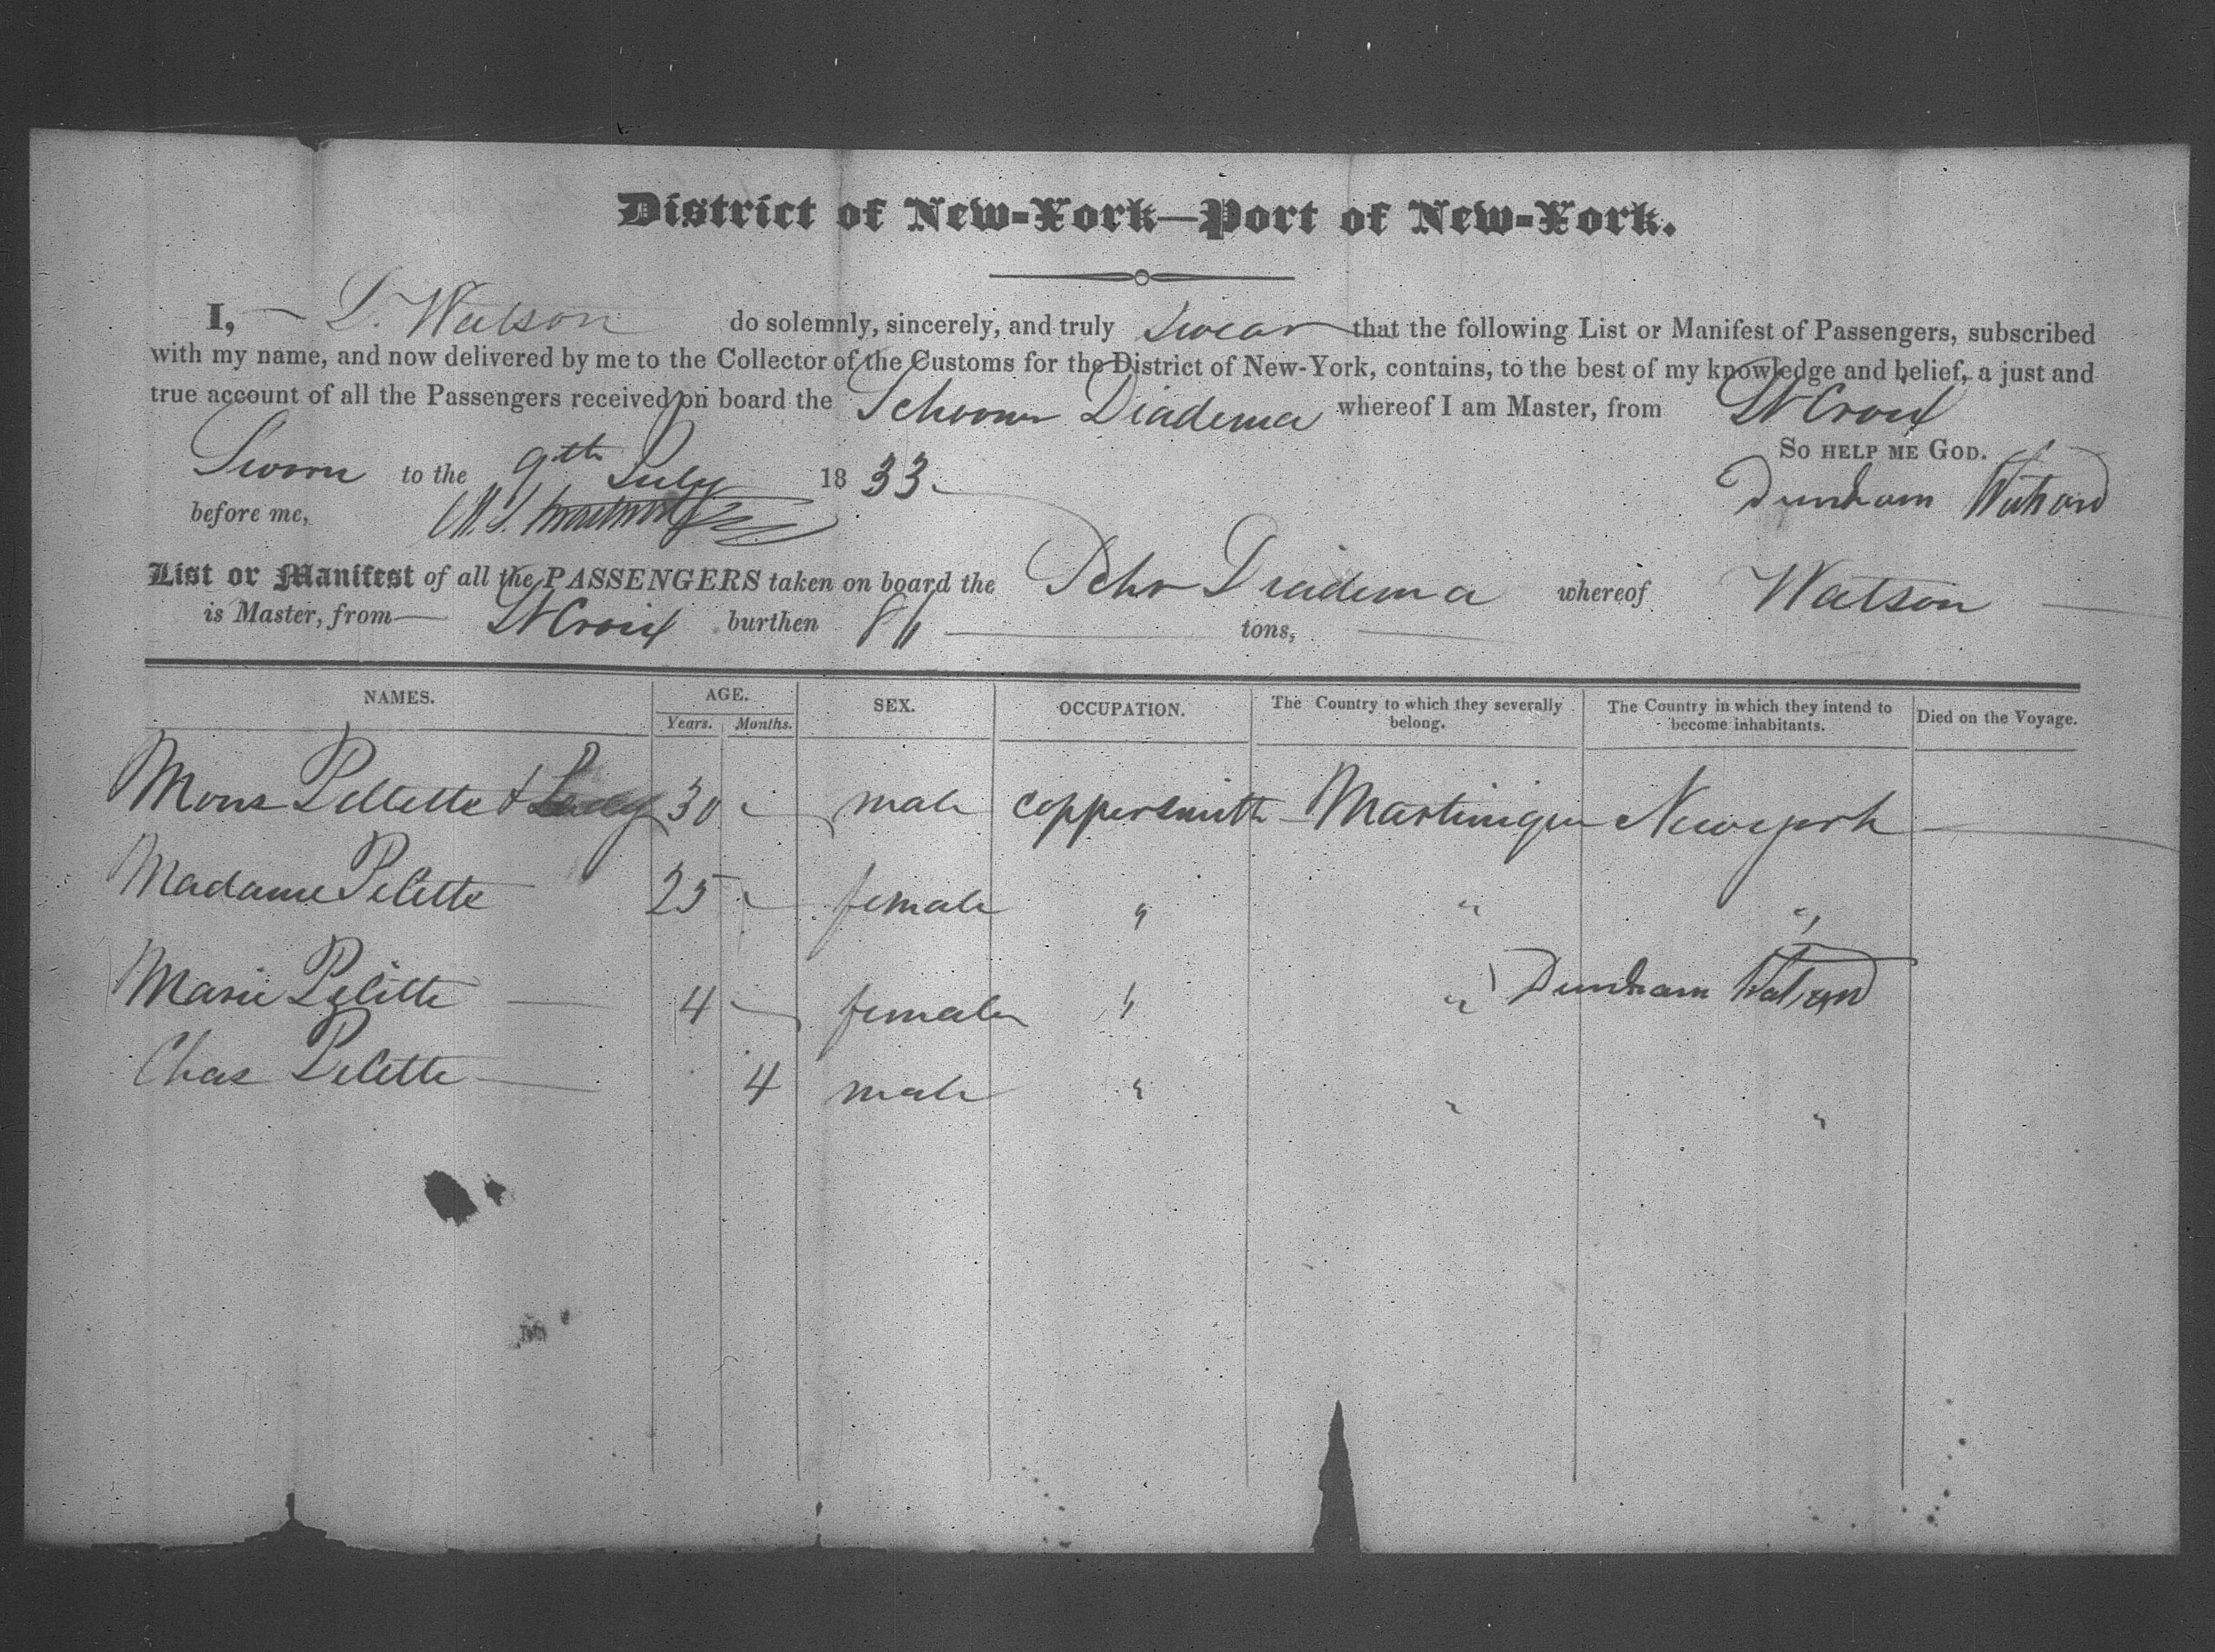 District of New-York—Port of New-York.
I, D. Watson do solemnly, sincerely, and truly swear that the following List or Manifest of Passengers, subscribed
with my name, and now delivered by me to the Collector of the Customs for the District of New-York, contains, to the best of my knowledge and belief, a just and
true account of all the Passengers received on board the Schooner Diadema whereof I am Master, from St Croix
So help me God.
Sworn to the 9th July 1833
Dunham Watson
before me,
List or Manifest of all the PASSENGERS taken on board the Schr Diadema whereof Watson
is Master, from St Croix burthen tons,
NAMES. AGE. SEX. OCCUPATION. The Country to which they severally belong. The Country in which they intend to become inhabitants. Died on the Voyage.
Years. Months.
Mons Pellette & Lady 30 male coppersmith Martinique Newyork
Madame Pelette 25 female " " "
Marie Pelette 4 female " " Dunham Watson
Chas Pelette 4 male " " "